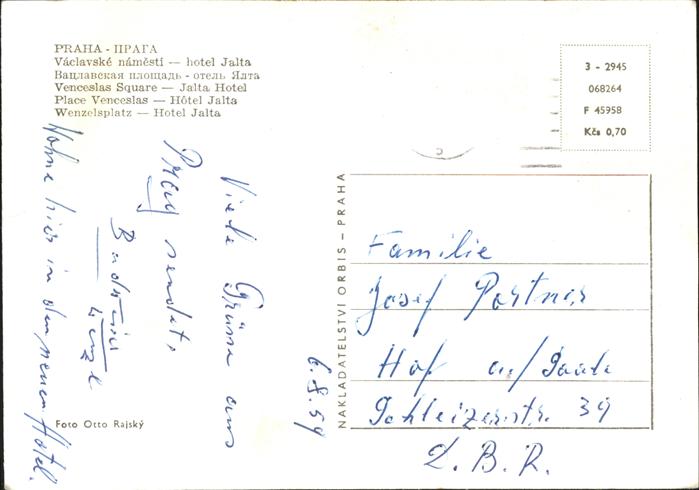 PRAHA - ПРАГА
Václavské náměstí — hotel Jalta
Вацлавская площадь - отель Ялта
Venceslas Square — Jalta Hotel
Place Venceslas — Hôtel Jalta
Wenzelsplatz — Hotel Jalta
3 - 2945
068264
F 45958
Kčs 0,70
Viele Grüsse aus
Prag sendet
Wohne hier in dem neuen Hotel.
6.8.59
NAKLADATELSTVÍ ORBIS – PRAHA
Familie
Josef Portner
Hof a/Saale
Schleizerstr. 39
D.B.R.
Foto Otto Rajský